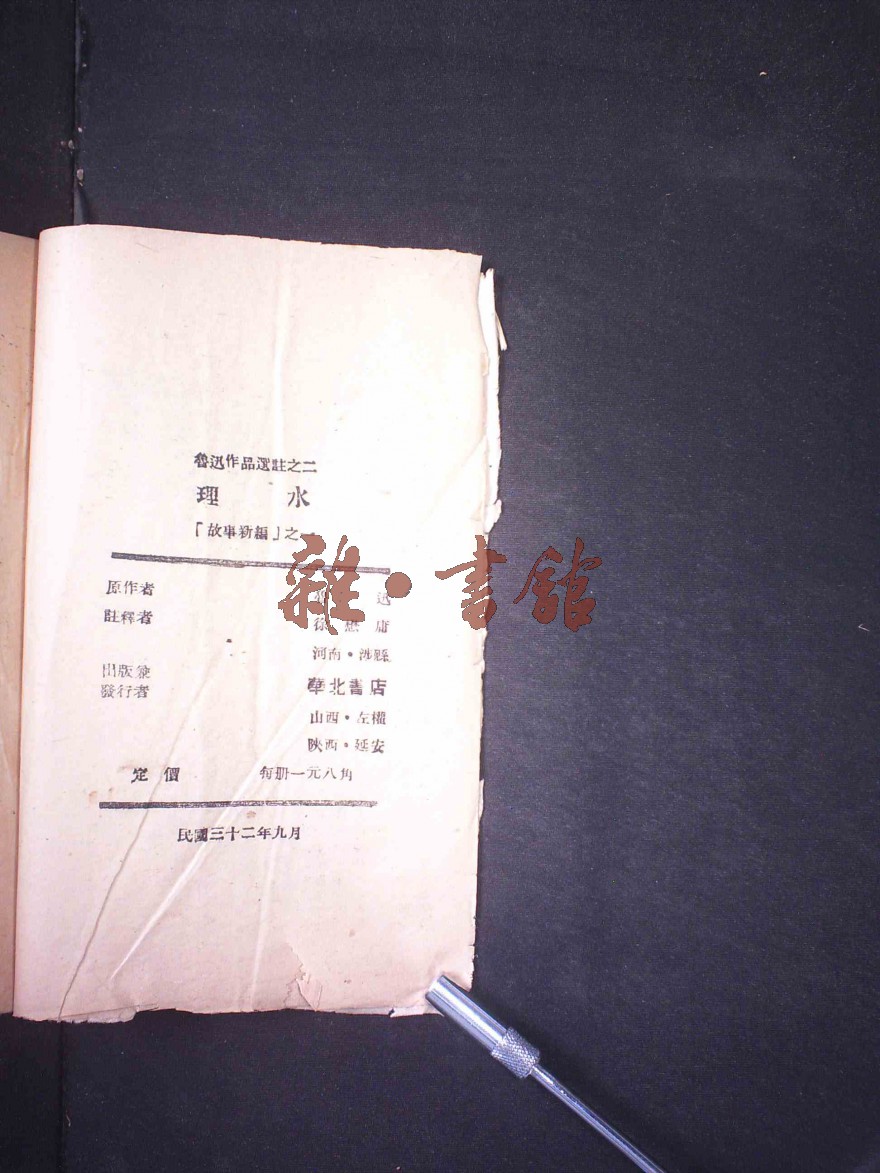 魯迅作品選註之二
理 水
「故事新編」之一
原作者 魯 迅
註釋者 徐懋庸
河南·涉縣
出版兼
發行者 華北書店
山西·左權
陝西·延安
定價 每册一元八角
民國三十二年九月
雜·書館